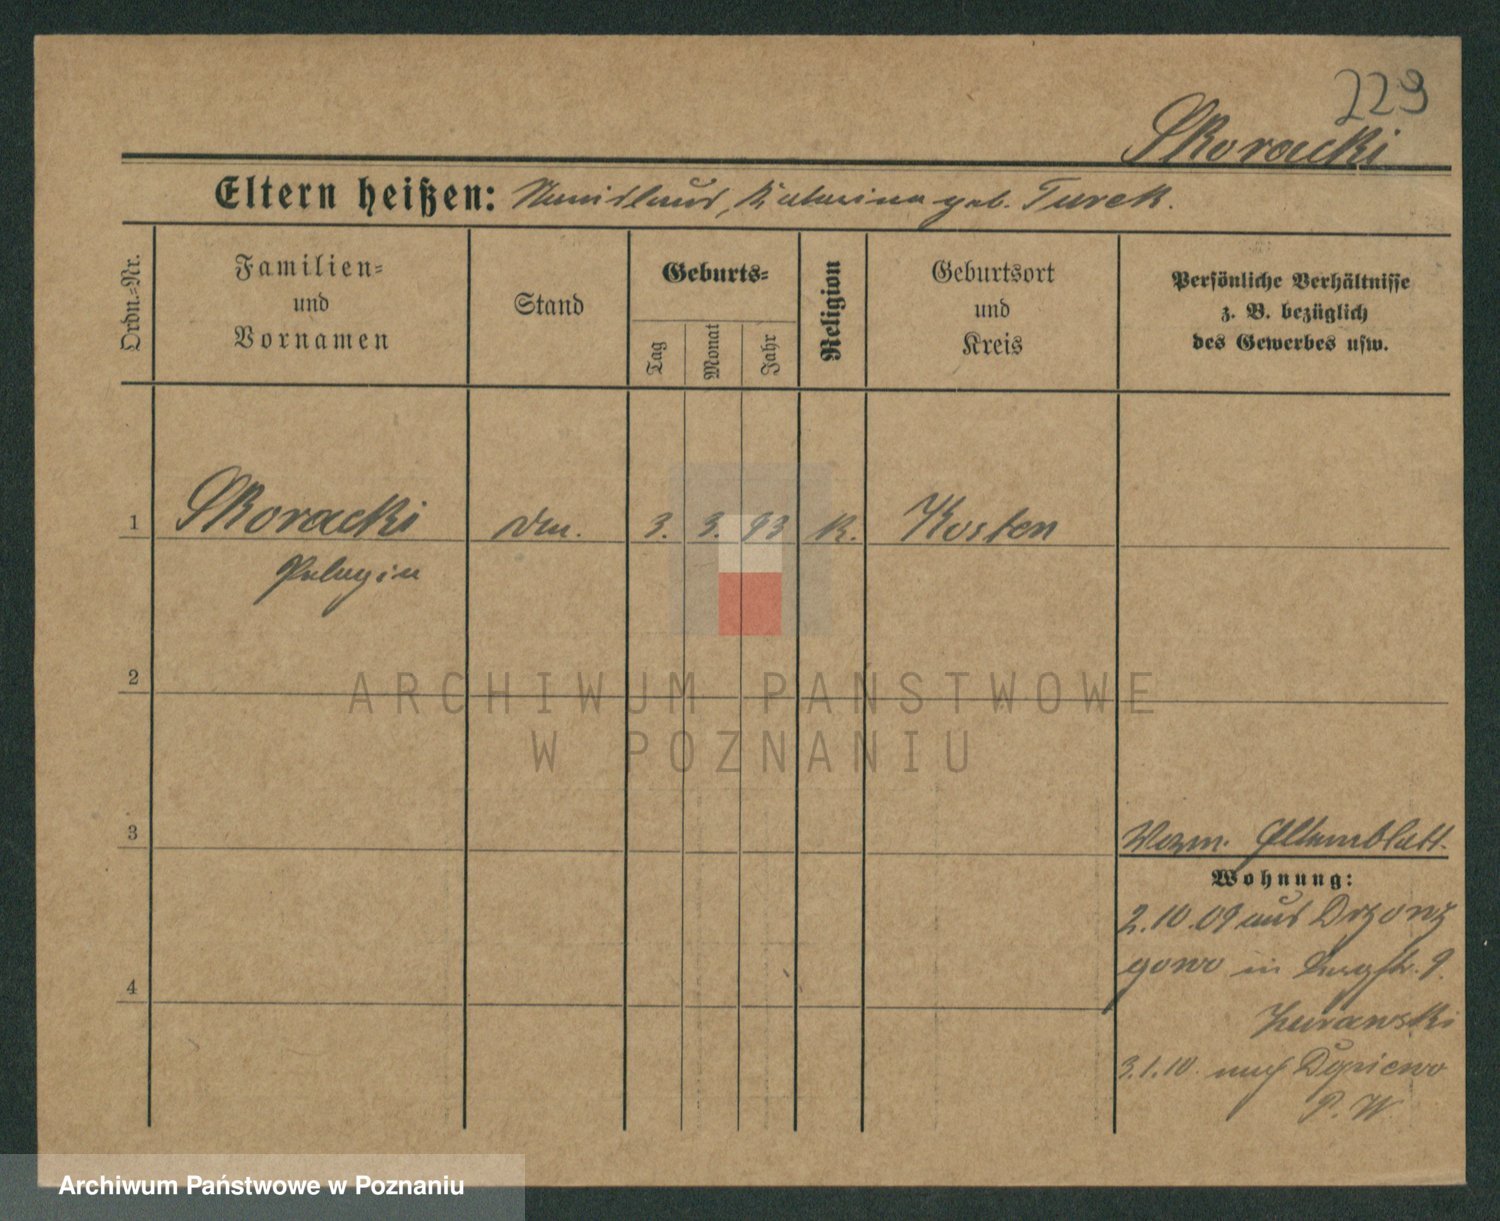 229
Skoracki
Eltern heißen: Stanislaus, Katarina geb. Turek.
Ordn.=Nr.
Familien=
und
Vornamen
Stand
Geburts=
Tag
Monat
Jahr
Religion
Geburtsort
und
Kreis
Persönliche Verhältnisse
z. B. bezüglich
des Gewerbes usw.
1
Skoracki
Pelagia
3. 3. 93
K.
Kosten
2
ARCHIWUM PAŃSTWOWE
W POZNANIU
3
Verm. Elternblatt.
Wohnung:
2.10.09 aus
gowo in Bergstr. 9.
Zurawski
3.1.10 nach Dopiewo
P. W
4
Archiwum Państwowe w Poznaniu